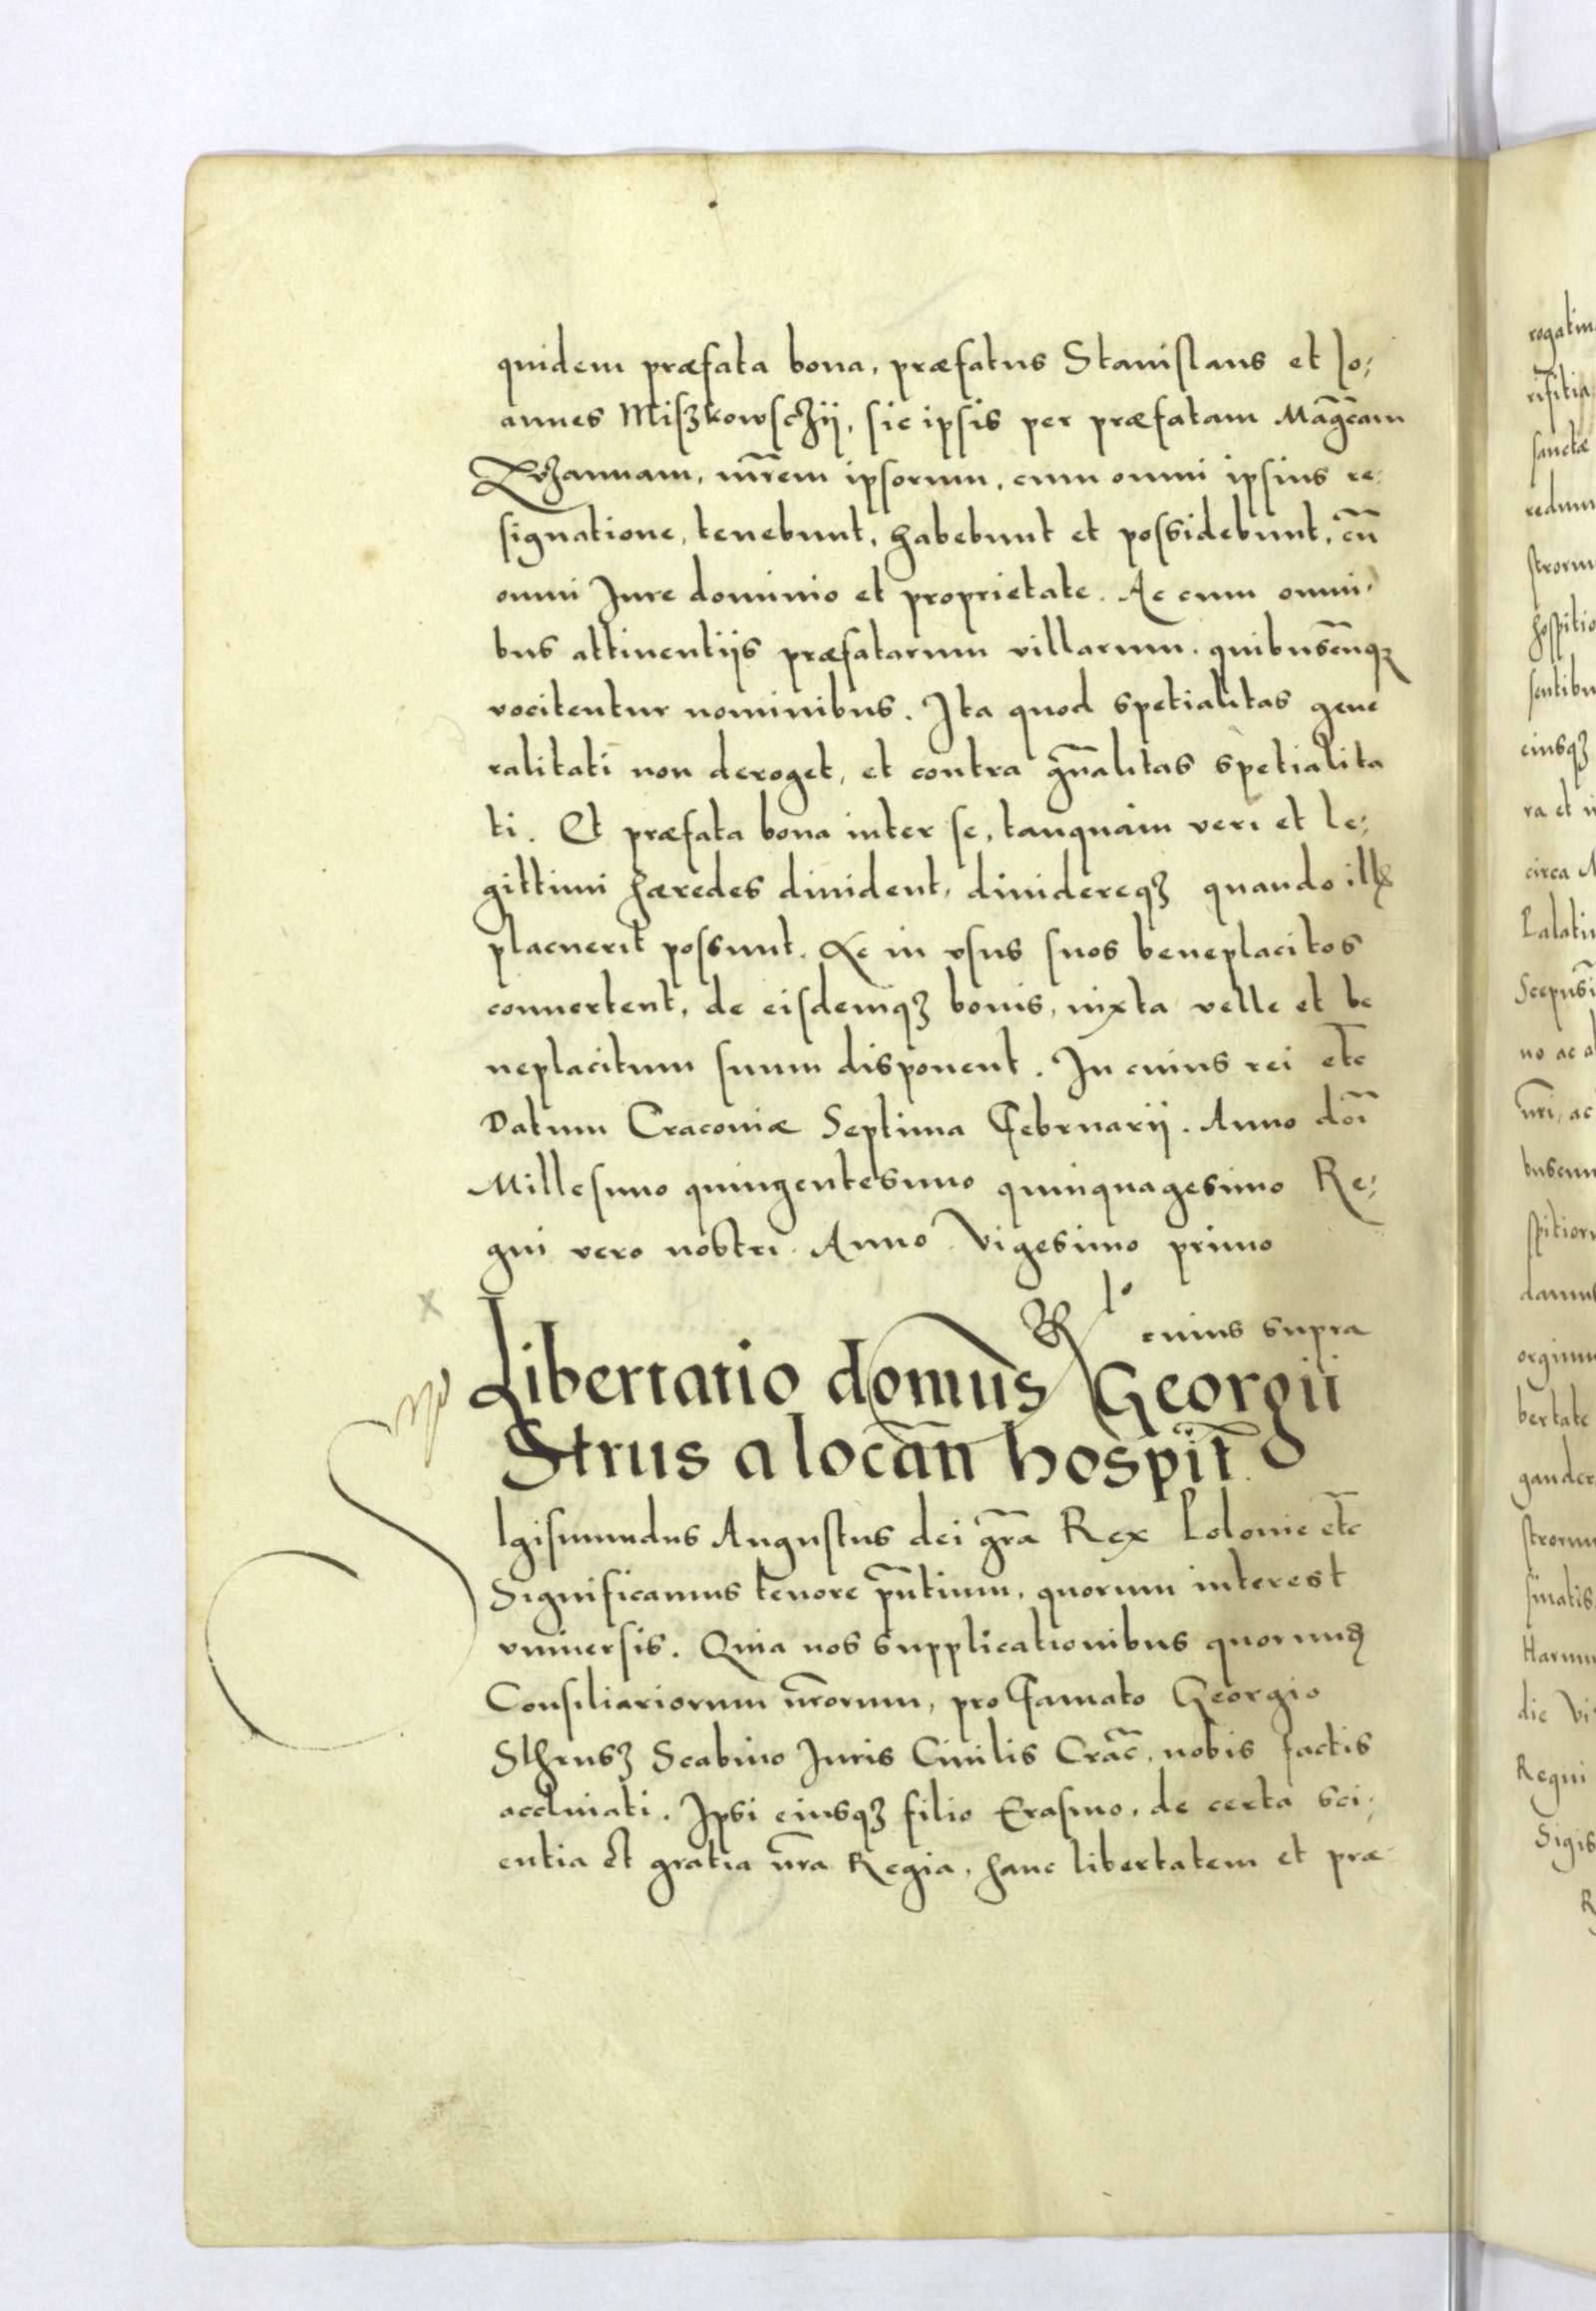 quidem præfata bona, præfatus Stanislaus et Jo;
annes Miſzkowſchij, ſic ipsis per præfatam Mag̃cam
mr̃em ipsorum, cum omni ipsius re;
signatione, tenebunt, habebunt et possidebunt, cũ
omni Jure dominio et proprietate. Ac cum omni
bus attinentijs præfatarum villarum. quibuscũqȝ
vocitentur nominibus. Ita quod spetialitas gene
ralitati non deroget, et contra gñalitas spetialita
ti. Et præfata bona inter se, tanquam veri et le;
gittimi hæredes diuident, diuidereqȝ quando
placuerit possunt. Ac in vsus suos beneplacitos
conuertent, de eisdemqȝ bonis, iuxta velle et be
neplacitum suum disponent. In cuius rei etc̃
Datum Cracouiæ Septima Februarij. Anno doñi
Millesimo quingentesimo quinquagesimo Re;
gni vero nostri Anno Vigesimo primo
cuius supra
Libertatio domus Georgii
Strus a locañ hospit̃
Igismundus Augustus dei gr̃a Rex Polonie etc̃
Significamus tenore pñtium, quorum interest
vniuersis. Quia nos supplicationibus quorund
Consiliariorum nr̃orum, pro Famato Georgio
Sthrusȝ Scabino Juris Ciuilis Crac̃, nobis factis
accliuati. Ipsi eiusqȝ filio Erasmo, de certa sci;
entia et gratia nr̃a Regia, hanc libertatem et præ